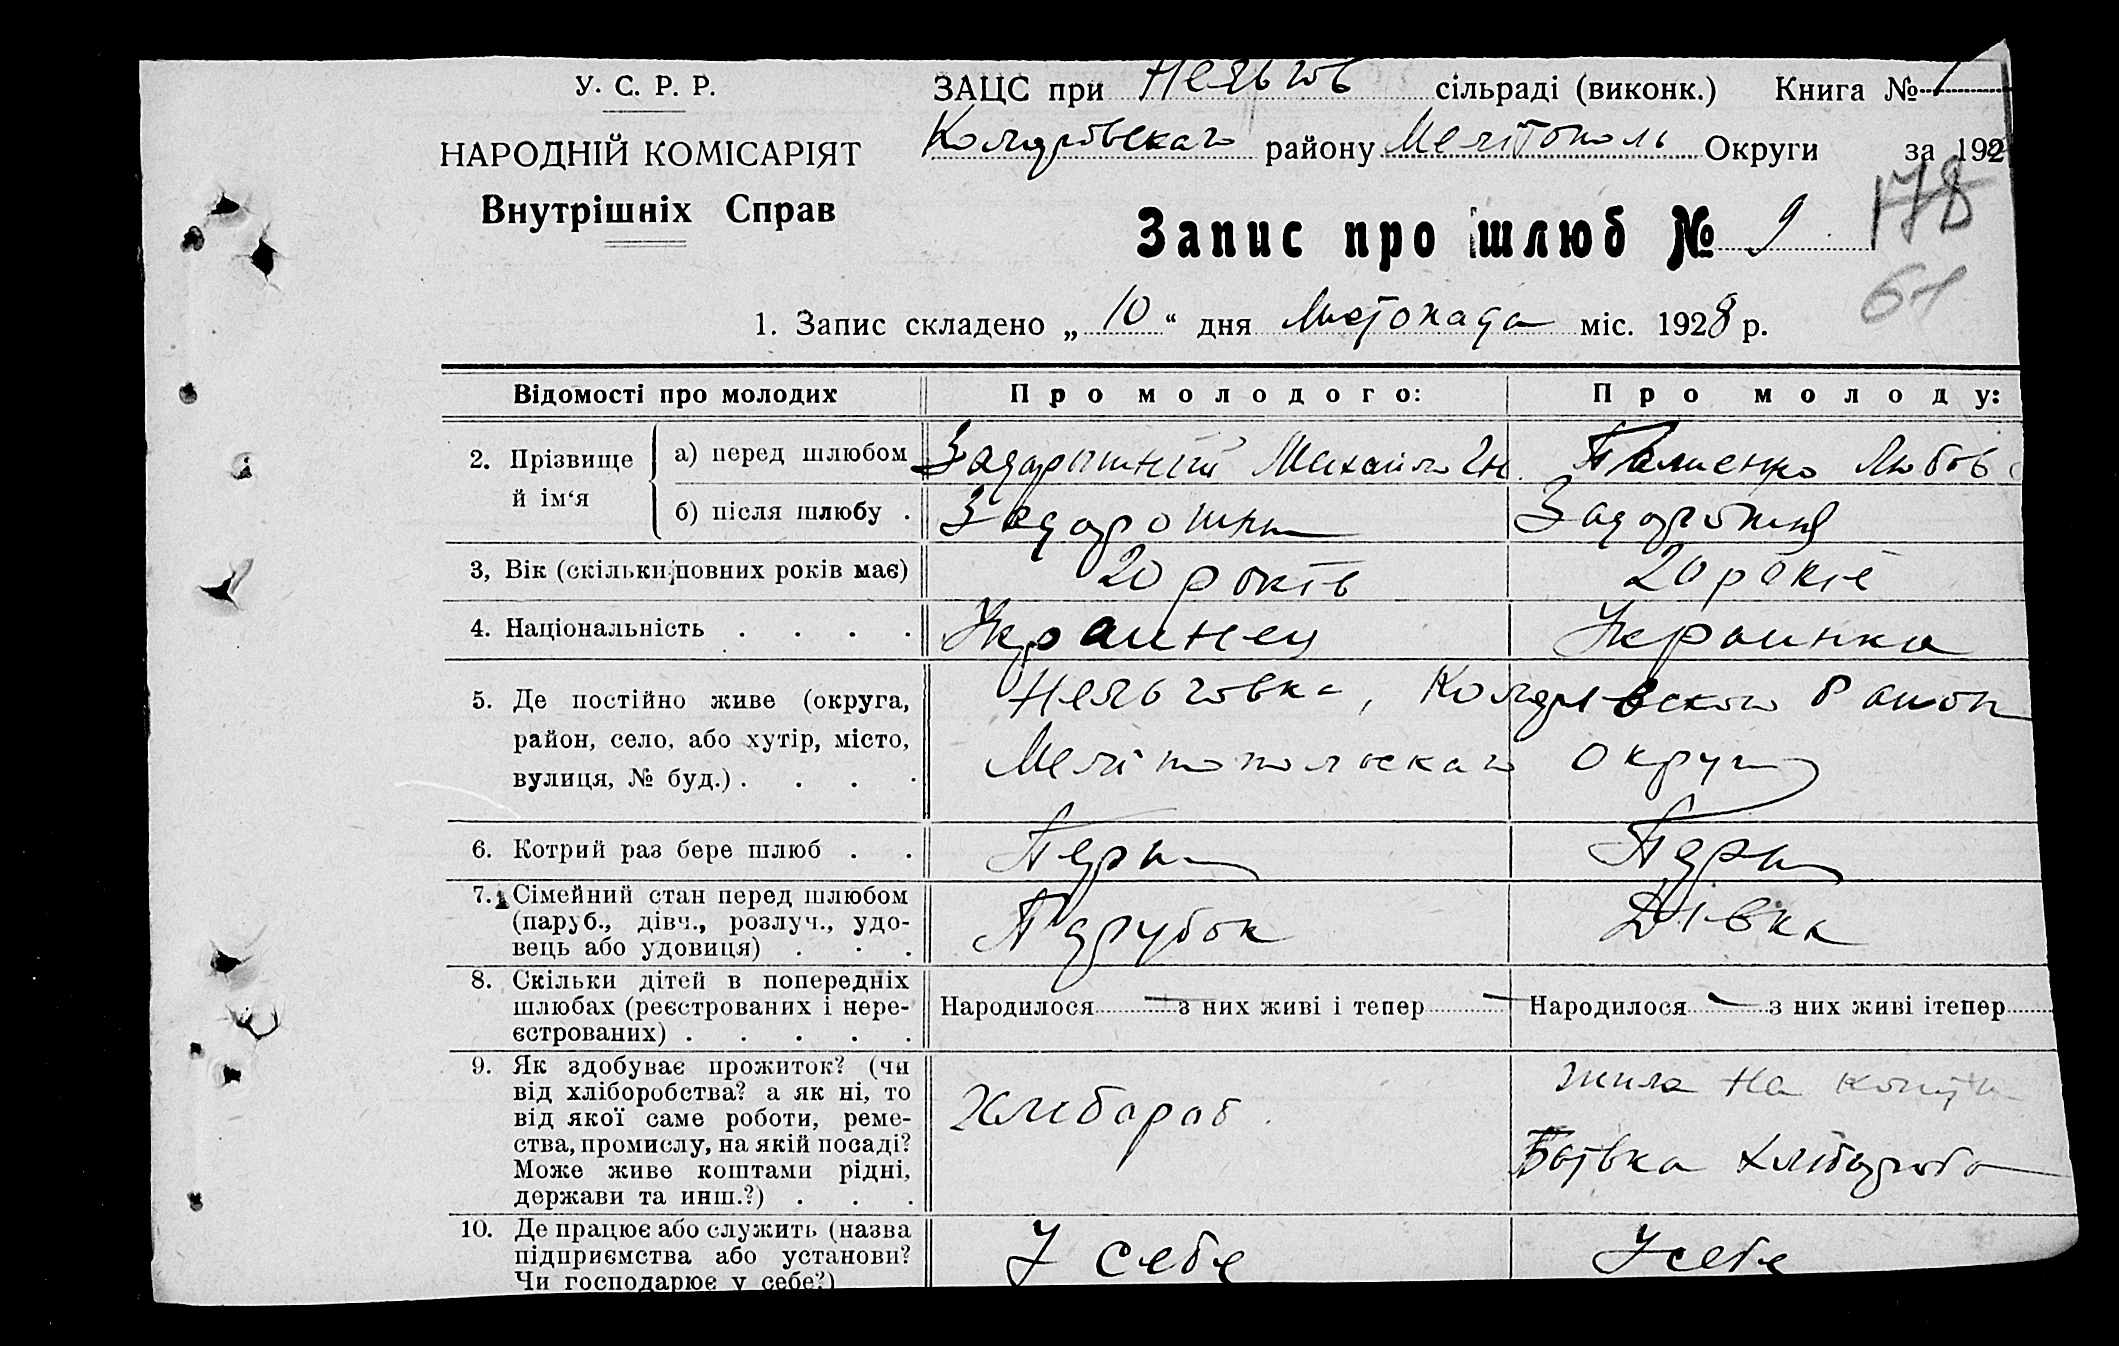 У. С. Р. Р.
НАРОДНІЙ КОМІСАРІЯТ
Внутрішніх Справ
ЗАЦС при Нельгов сільраді (виконк.) Книга № 1
району Мелітополь Округи за 192
Запис про шлюб № 9
178
61
1. Запис складено „ 10 “ дня Листопада міс. 1928 р.
Відомості про молодих
Про молодого:
Про молоду:
2. Прізвище й ім‘я
а) перед шлюбом
Михайло
Любов
б) після шлюбу .
3, Вік (скільки повних років має)
20 років
20 років
4. Національність . . . .
Украинец
Украинка
5. Де постійно живе (округа,
район, село, або хутір, місто,
вулиця, № буд.) . . . .
Нельговка,
округи
6. Котрий раз бере шлюб . .
Перш
Перш
7. Сімейний стан перед шлюбом
(паруб., дівч., розлуч., удо-
вець або удовиця) . . .
Парубок
Дівка
8. Скільки дітей в попередніх
шлюбах (реєстрованих і нере-
єстрованих) . . . . .
Народилося — з них живі і тепер —
Народилося — з них живі ітепер
9. Як здобуває прожиток? (чи
від хліборобства? а як ні, то
від якої саме роботи, реме-
ства, промислу, на якій посаді?
Може живе коштами рідні,
держави та инш.?) . . .
Хлибароб
жила на
Батька хлібороба
10. Де працює або служить (назва
підприємства або установи?
Чи господарює у себе?)
У себе
У себе